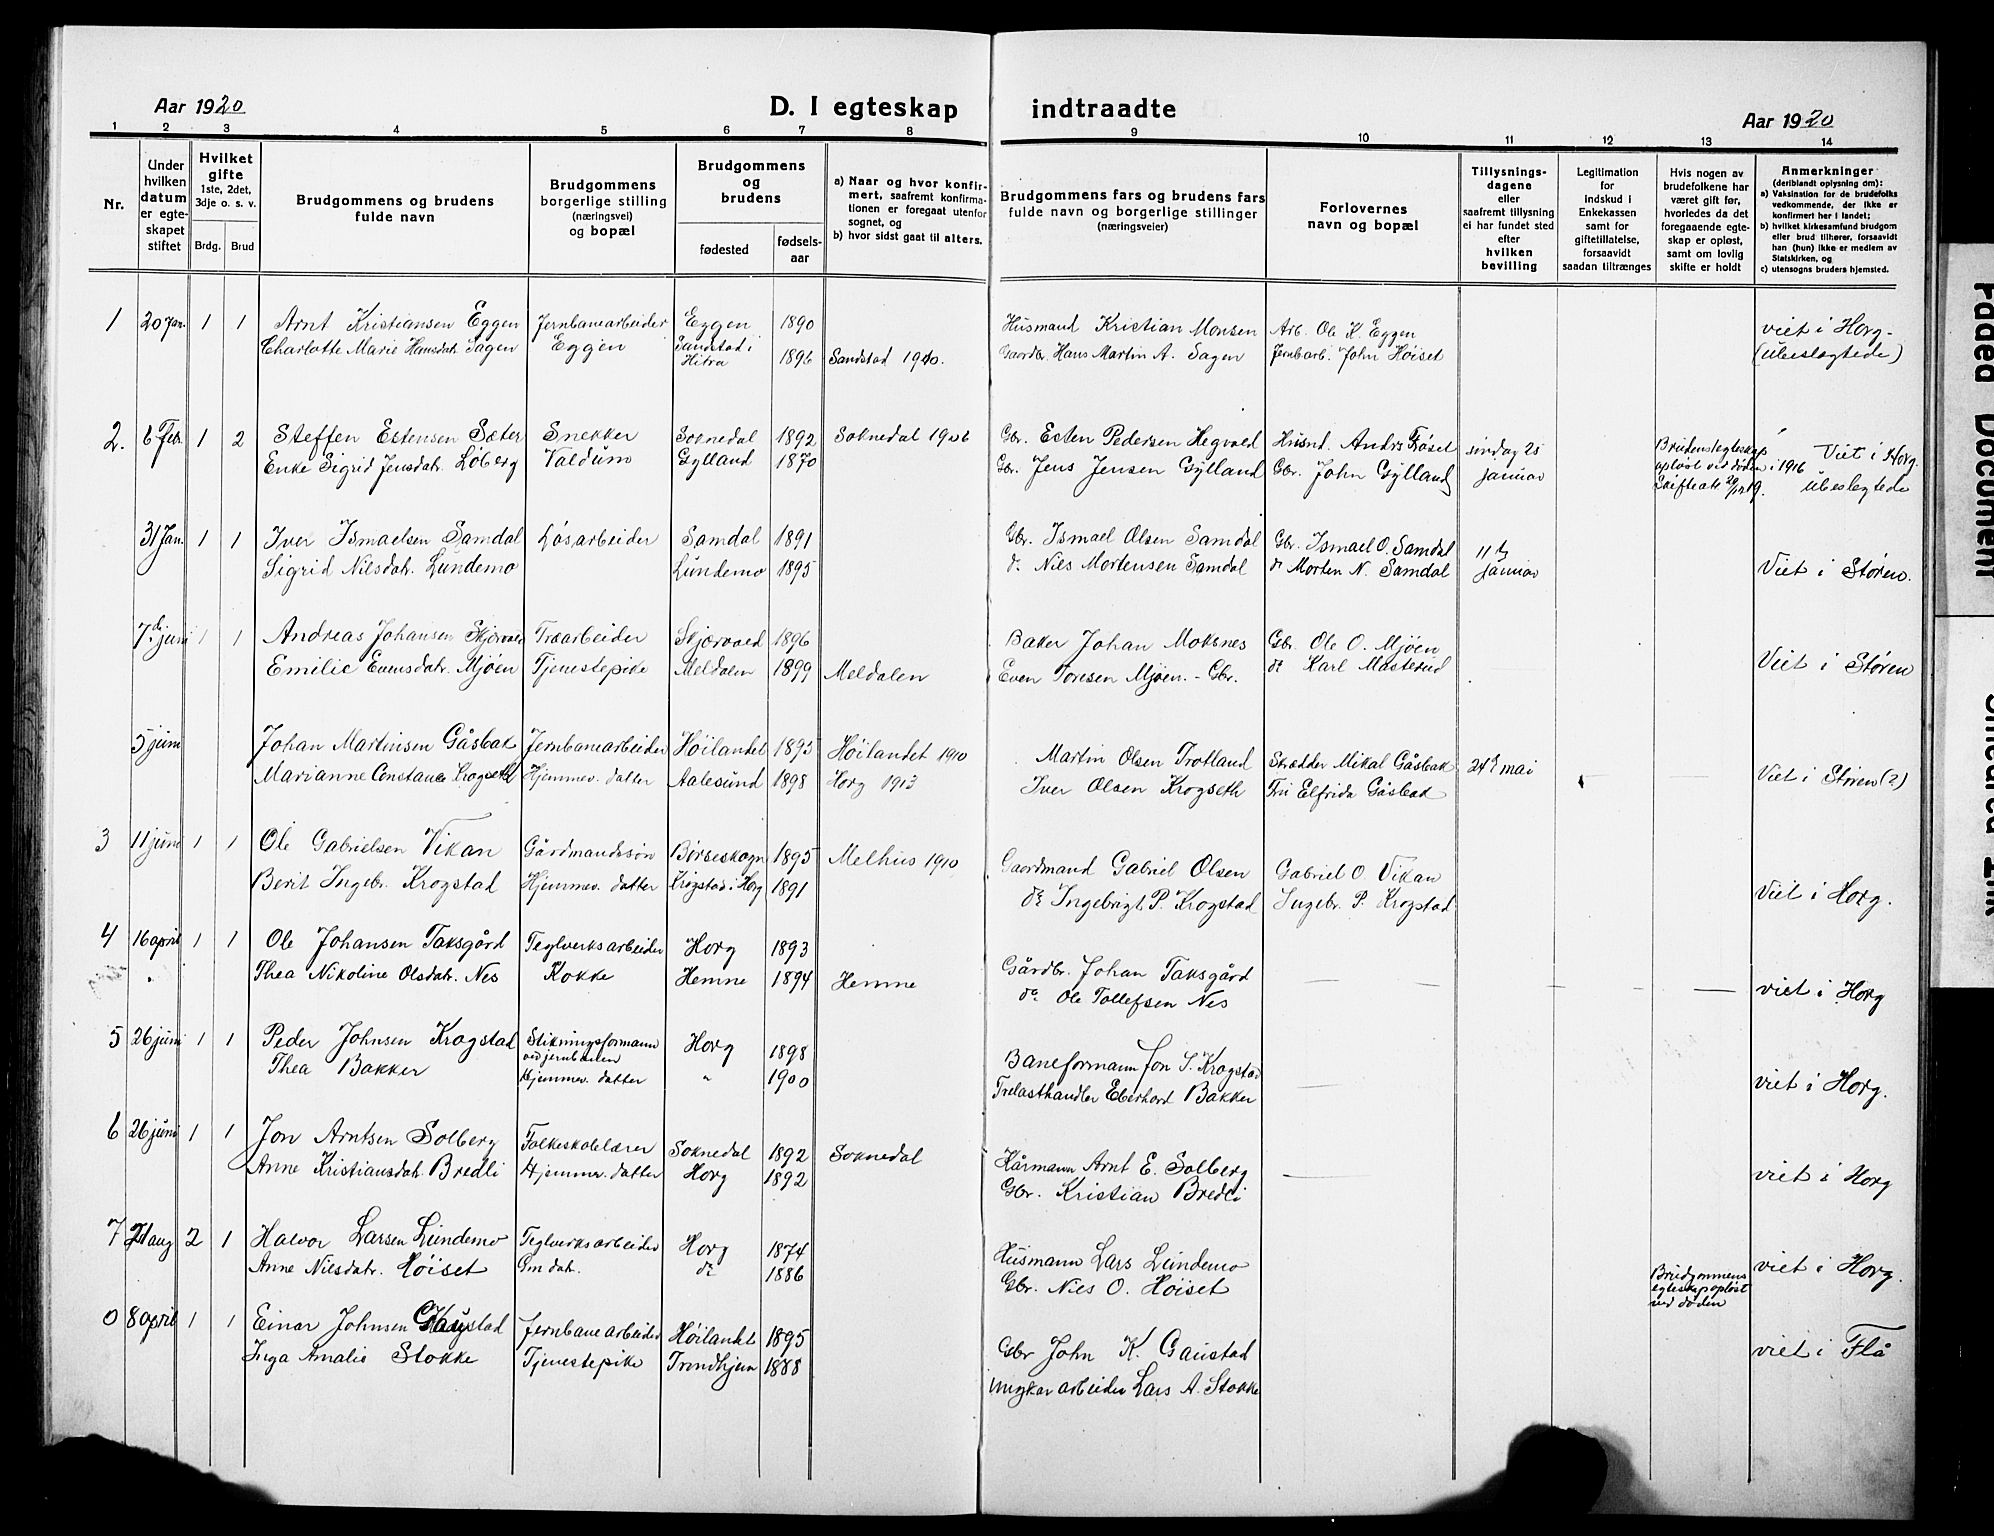 Aar 1920
D. I egteskap indtraadte
Aar 1920
1 2 3 4 5 6 7 8 9 10 11 12 13 14
Nr.
Under hvilken datum er egteskapet stiftet
Hvilket gifte 1ste, 2det, 3dje o. s. v.
Brdg. Brud
Brudgommens og brudens fulde navn
Brudgommens borgerlige stilling (næringsvei) og bopæl
Brudgommens og brudens
fødested fødselsaar
a) Naar og hvor konfirmert, saafremt konfirmationen er foregaat utenfor sognet, og
b) hvor sidst gaat til alters.
Brudgommens fars og brudens fars fulde navn og borgerlige stillinger (næringsveier)
Forlovernes navn og bopæl
Tillysningsdagene eller saafremt tillysning ei har fundet sted efter hvilken bevilling
Legitimation for indskud i Enkekassen samt for giftetillatelse, forsaavidt saadan tiltrænges
Hvis nogen av brudefolkene har været gift før, hvorledes da det foregaaende egteskap er opløst, samt om lovlig skifte er holdt
Anmerkninger (deriblandt oplysning om):
a) Vaksination for de brudefolks vedkommende, der ikke er konfirmert her i landet;
b) hvilket kirkesamfund brudgom eller brud tilhører, forsaavidt han (hun) ikke er medlem av Statskirken, og
c) utensogns bruders hjemsted.
1 20 Jan. 1 1 Arnt Kristiansen Eggen Jernbanearbeider Eggen 1890 Husmand Kristian Monsen Arb. Ole K. Eggen viet i Horg.
Charlotte Marie Hansdatr. Sagen Eggen Sandstad i Hitra 1896 Sandstad 1910. Gaardbr. Hans Martin A. Sagen Jernbarb. John Høiset (ubeslegtede)
2. 6 Febr. 1 2 Steffen Estensen Sæter Snekker Soknedal 1892 Soknedal 1906 Gbr. Esten Pedersen Hegvold Husmd. Anders Frøset søndag 25 Brudens egteskap Viet i Horg.
Enke Sigrid Jensdatr. Løberg Valdum Gylland 1870 Gbr. Jens Jensen Gylland Gbr. John Gylland januar opløst ved døden i 1916 ubeslegtede
Skifteatt.
31 Jan. 1 1 Iver Ismaelsen Samdal Løsarbeider Samdal 1891 Gbr. Ismael Olsen Samdal Gbr. Ismael O. Samdal 11te
Sigrid Nilsdatr. Lundemo Lundemo 1895 do Nils Mortensen Samdal do Morten N. Samdal januar Viet i Støren.
7de juni 1 1 Andreas Johansen Skjervold Træarbeider Skjærvold 1896 Baker Johan Moksnes Gbr. Ole O. Mjøen
Emilie Evensdatr. Mjøen Tjenestepike Meldalen 1899 Meldalen Even Toresen Mjøen. - Gbr. do Karl Mosterud Viet i Støren
5 juni Johan Martinsen Gåsbak Jernbanearbeider Høilandet 1895 Høilandet 1910 Martin Olsen Trotland Skrædder Mikal Gåsbak 24de mai
Marianne Constance Krogseth Hjemmev. datter Aalesund 1898 Horg 1913 Iver Olsen Krogseth Fru Elfrida Gåsbak Viet i Støren (?)
3 11 juni 1 1 Ole Gabrielsen Vikan Gårdmandssøn Børseskogn 1895 Melhus 1910 Gaardmand Gabriel Olsen Gabriel O Vikan
Berit Ingebr. Krogstad Hjemmev. datter Krogstad i Horg 1891 do Ingebrigt P. Krogstad Ingebr. P. Krogstad Viet i Horg.
4 16 april 1 1 Ole Johansen Taksgård Teglverksarbeider Horg 1893 Gårdbr. Johan Taksgård
Thea Nikoline Olsdatr. Nes Kokke Hemne 1894 Hemne do Ole Tollefsen Nes viet i Horg
5 26 juni 1 1 Peder Johnsen Krogstad Stikningsformann ved jernbanen Horg 1898 Baneformann Jon S. Krogstad
Thea Bakker Hjemmev. datter " 1900 Trelasthandler Eberhard Bakker viet i Horg.
6 26 juni 1 1 Jon Arntsen Solberg Folkeskolelærer Soknedal 1892 Soknedal Kårmann Arnt E. Solberg
Anne Kristiansdatr. Bredli Hjemmev. datter Horg 1892 Gbr. Kristian Bredli viet i Horg
7 21 aug 2 1 Halvor Larsen Lundemo Teglverksarbeider Horg 1874 Husmann Lars Lundemo Brudgommens egteskap opløst ved døden viet i Horg.
Anne Nilsdatr. Høiset Gmdatr. do 1886 Gbr. Nils O. Høiset
0 8 april 1 1 Einar Johnsen Gaustad Jernbanearbeider Høilandet 1895 Gbr John K. Gaustad viet i Flå
Inga Amalie Stokke Tjenestepike Trondhjem 1888 arbeider Lars A. Stokke
Faded Document